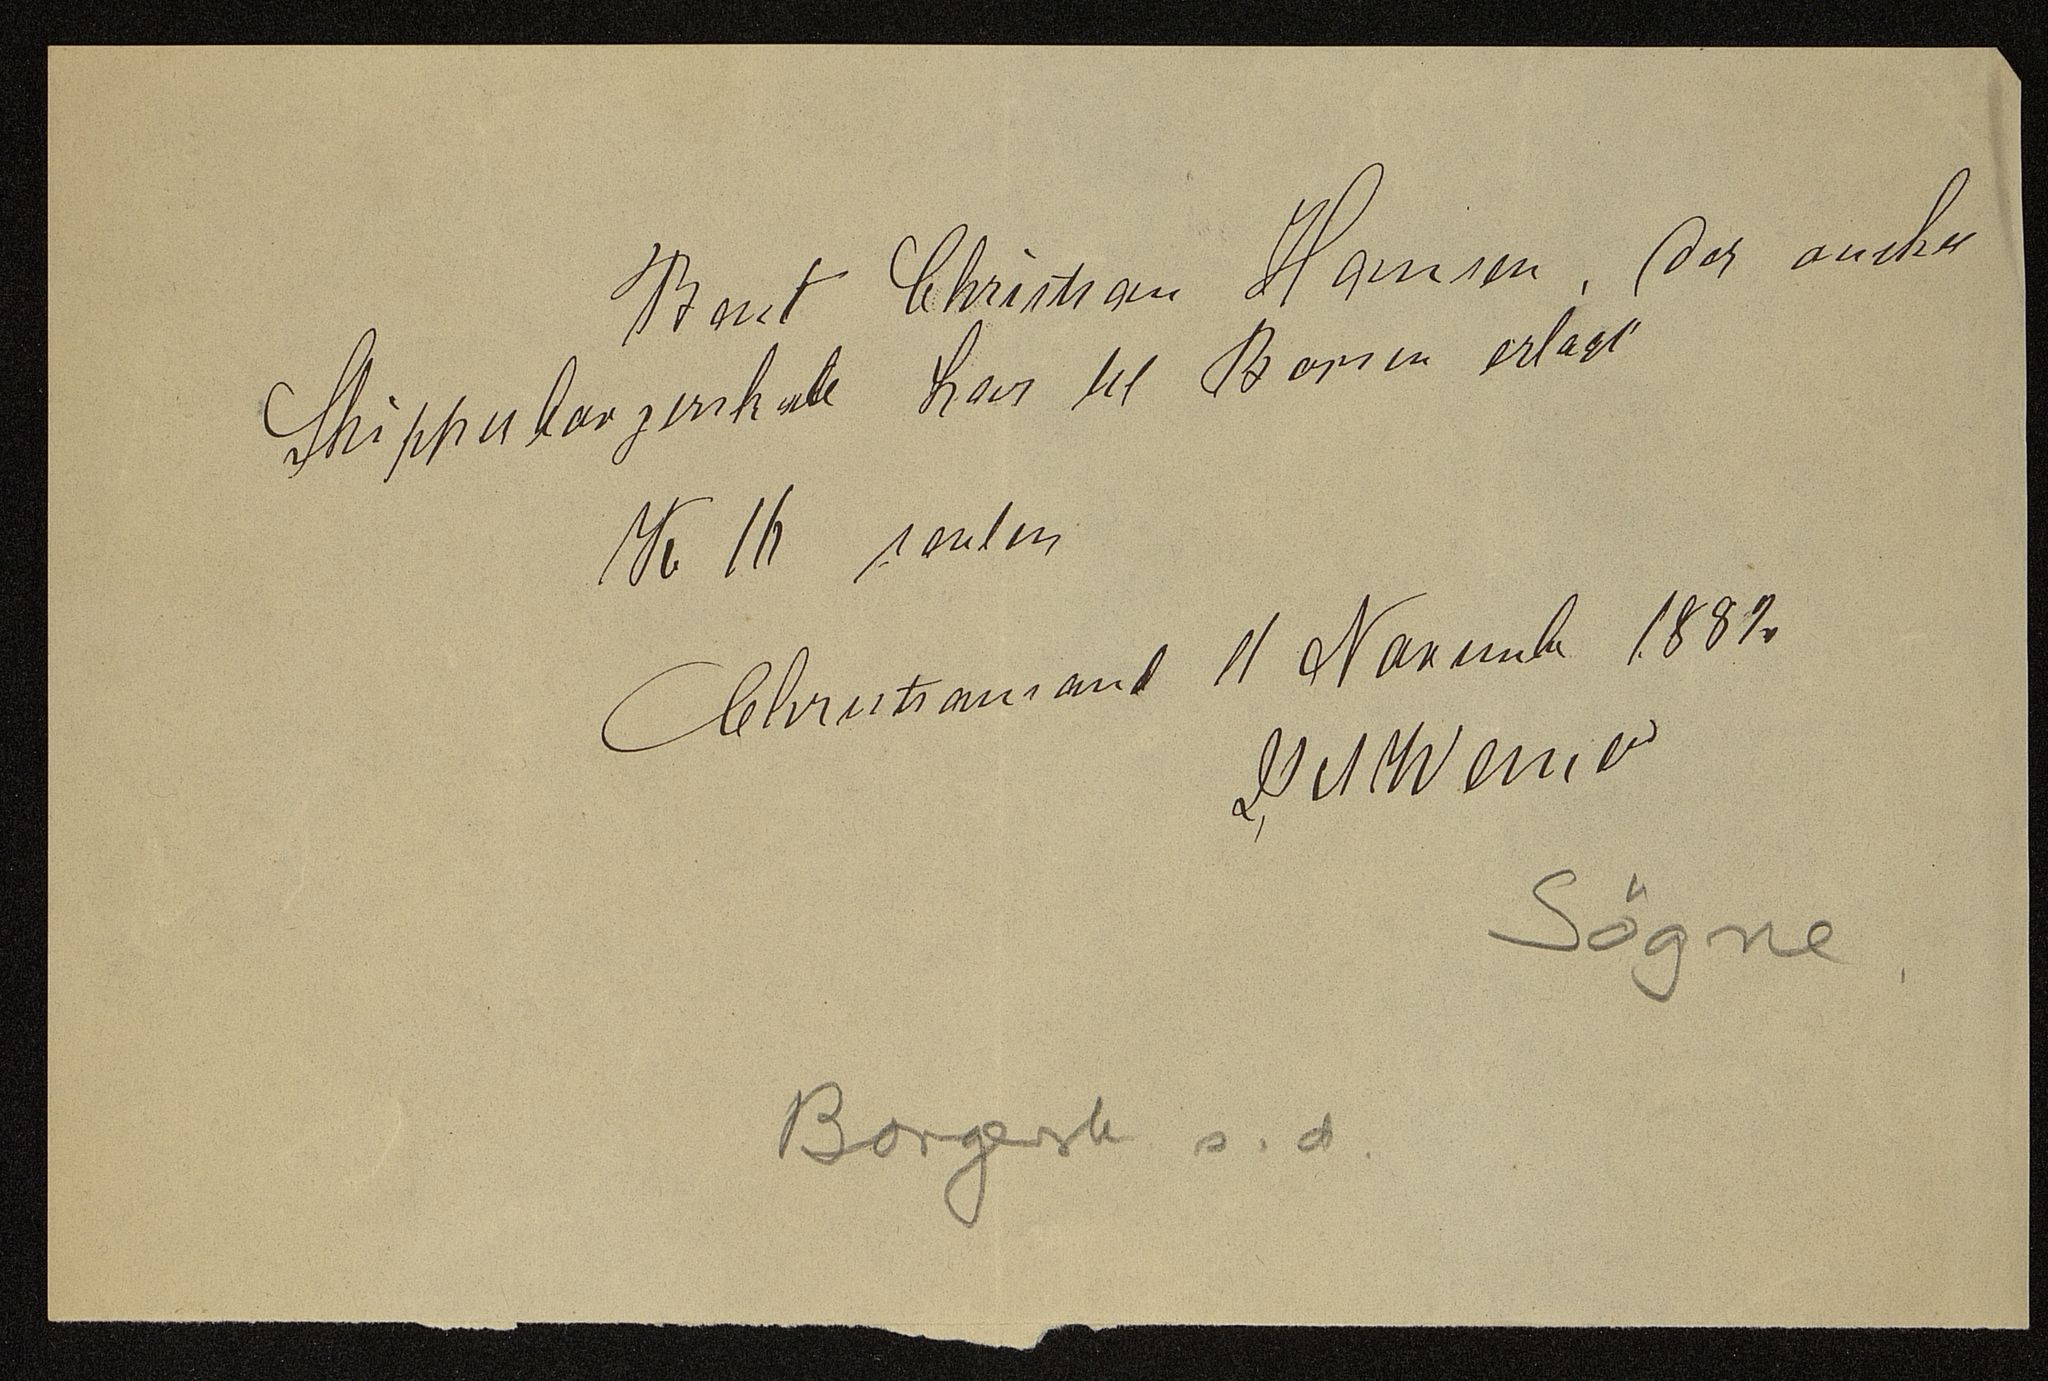 Bent Christian Hansen, der ønsker
Skipperborgerskab har til Børsen erlagt
Kr 16 sexten
Christiansand 11 November 1882
Werner
Sögne
Borgersk s. d.